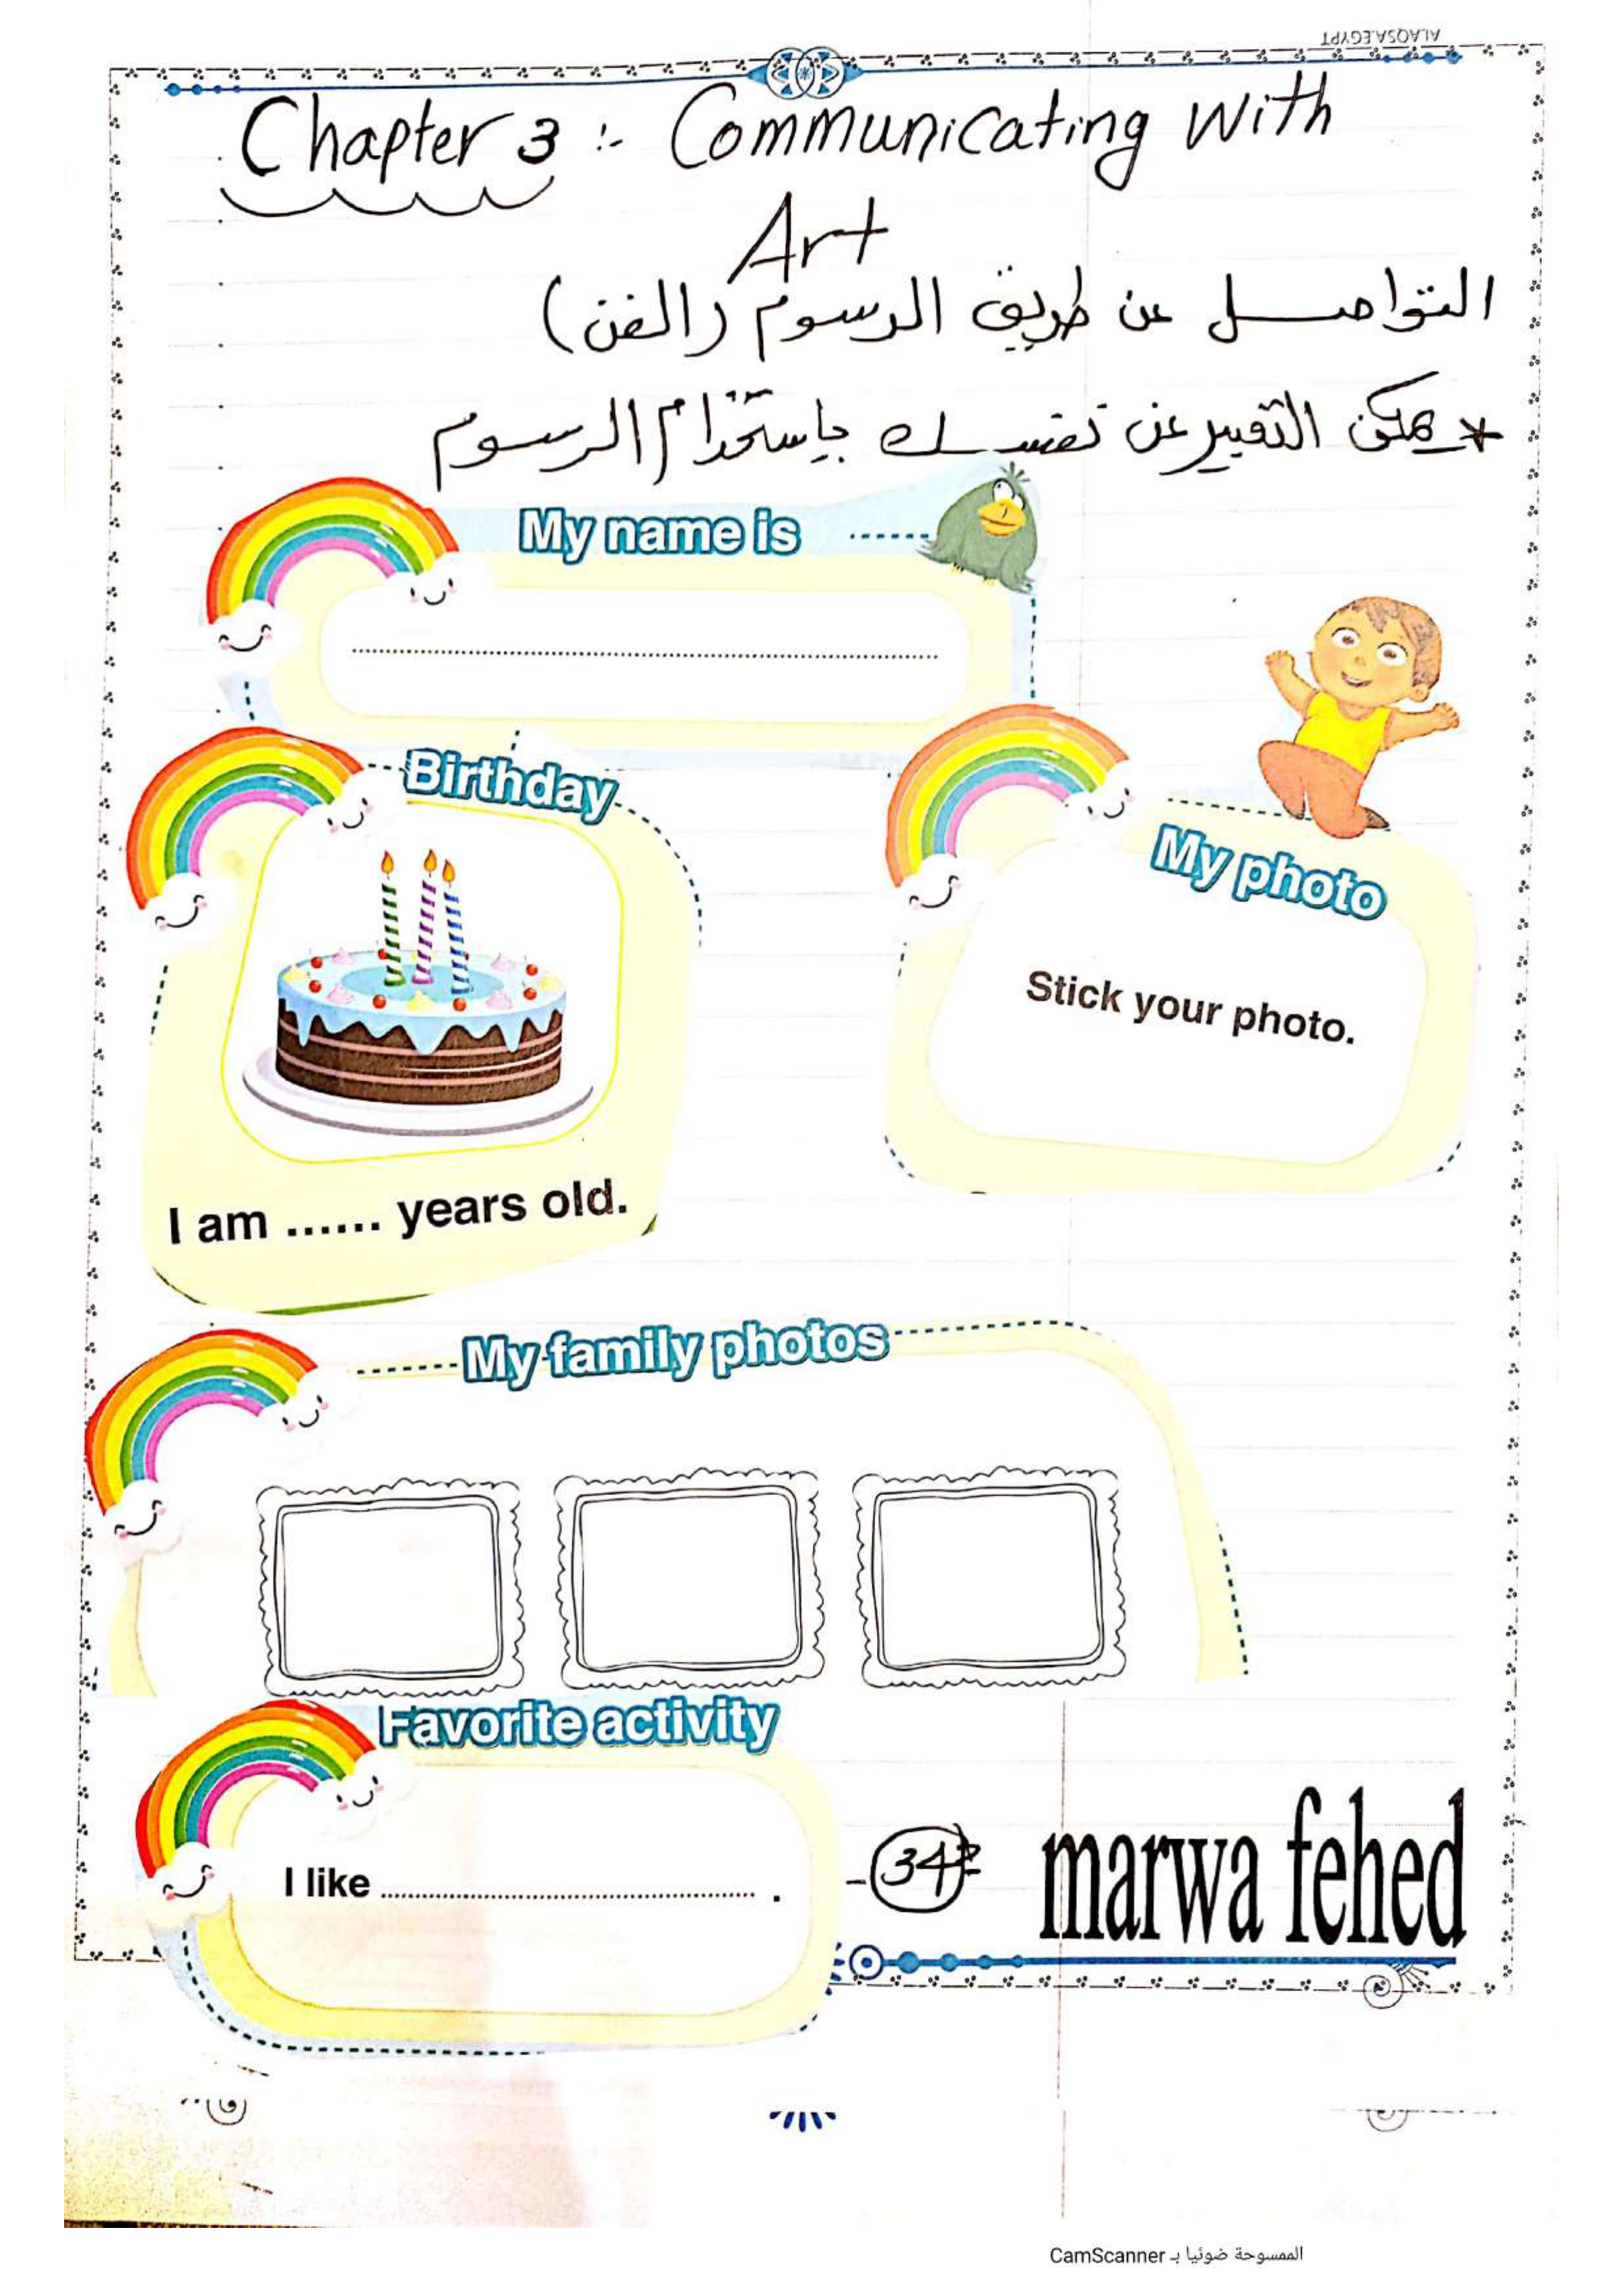 ALAQSA.EGYPT
Chapter 3 :- Communicating with
Art
التواصل عن طريق الرسوم (الفن)
* يمكن التعبير عن نفسك باستخدام الرسوم
My name is ......
..........
Birthday
My photo
Stick your photo.
I am ...... years old.
My family photos
Favorite activity
I like .......... .
-34-
marwa fehed
الممسوحة ضوئيا بـ CamScanner